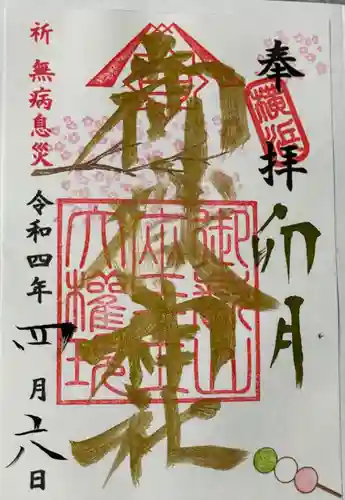 奉拝
横浜
卯月
御嶽神社
御嶽山
座王
大權現
祈 無病息災
令和四年 四月 八日